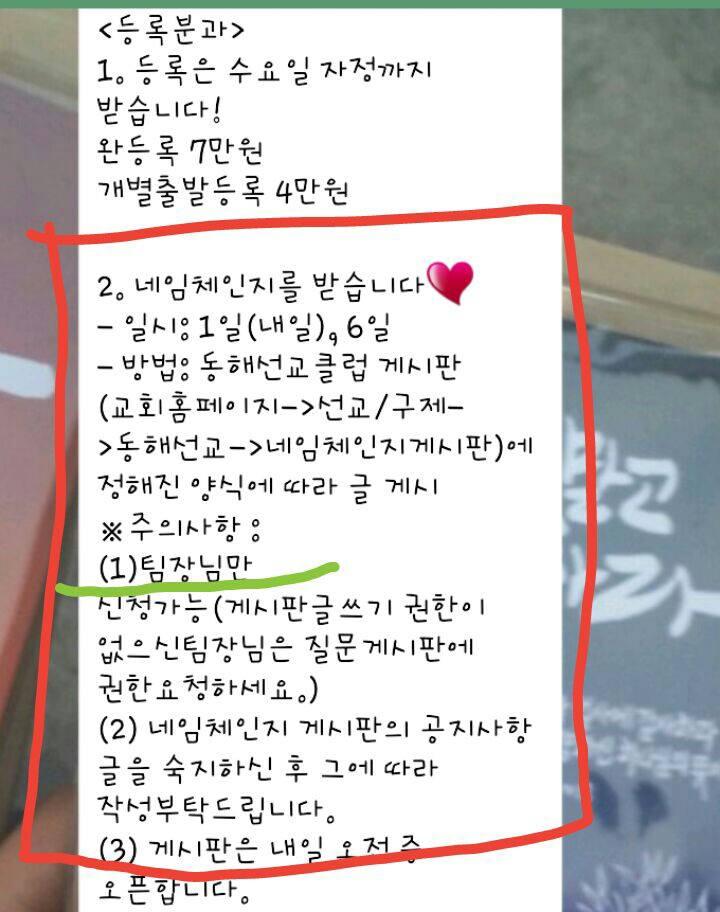 <등록분과>
1. 등록은 수요일 자정까지
받습니다!
완등록 7만원
개별출발등록 4만원
2. 네임체인지를 받습니다
- 일시: 1일(내일), 6일
- 방법: 동해선교클럽 게시판
(교회홈페이지->선교/구제-
>동해선교->네임체인지게시판)에
정해진 양식에 따라 글 게시
※ 주의사항 :
(1)팀장님만
신청가능 (게시판글쓰기 권한이
없으신팀장님은 질문게시판에
권한요청하세요.)
(2) 네임체인지 게시판의 공지사항
글을 숙지하신 후 그에 따라
작성부탁드립니다.
(3) 게시판은 내일 오전 중
오픈합니다.